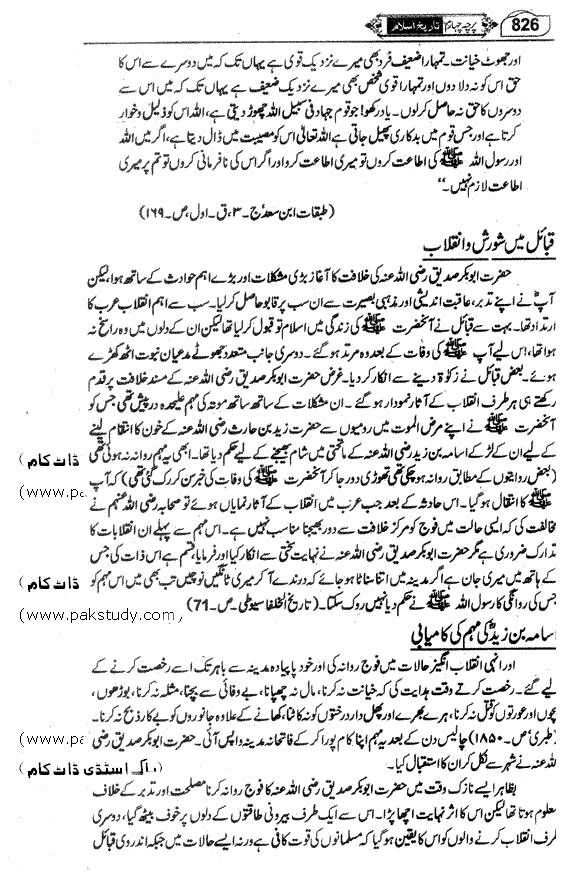 826
پرچہ چہارم تاریخ اسلام
اور جھوٹ خیانت۔ تمہارا ضعیف فرد بھی میرے نزدیک قوی ہے یہاں تک کہ میں دوسرے سے اس کا
حق اس کو نہ دلا دوں اور تمہارا قوی شخص بھی میرے نزدیک ضعیف ہے یہاں تک کہ میں اس سے
دوسروں کا حق نہ حاصل کرلوں۔ یاد رکھو! جو قوم جہاد فی سبیل اللہ چھوڑ دیتی ہے، اللہ اس کو ذلیل وخوار
کرتا ہے اور جس قوم میں بدکاری پھیل جاتی ہے اللہ تعالیٰ اس کو مصیبت میں ڈال دیتا ہے، اگر میں اللہ
اور رسول اللہ ﷺ کی اطاعت کروں تو میری اطاعت کرو اور اگر اس کی نافرمانی کروں تو تم پر میری
اطاعت لازم نہیں۔“
(طبقات ابن سعدؒ ج۔۳، ق۔ اول، ص۔ ۱۶۹)
قبائل میں شورش و انقلاب
حضرت ابوبکر صدیق رضی اللہ عنہ کی خلافت کا آغاز بڑی مشکلات اور بڑے اہم حوادث کے ساتھ ہوا، لیکن
آپؓ نے اپنے تدبر، عاقبت اندیشی اور مذہبی بصیرت سے ان سب پر قابو حاصل کرلیا۔ سب سے اہم انقلاب عرب کا
ارتداد تھا۔ بہت سے قبائل نے آنحضرت ﷺ کی زندگی میں اسلام تو قبول کرلیا تھا لیکن ان کے دلوں میں وہ راسخ نہ
ہوا تھا، اس لیے آپ ﷺ کی وفات کے بعد وہ مرتد ہوگئے۔ دوسری جانب متعدد جھوٹے مدعیان نبوت اٹھ کھڑے
ہوئے۔ بعض قبائل نے زکوٰۃ دینے سے انکار کردیا۔ غرض حضرت ابوبکر صدیق رضی اللہ عنہ کے مسند خلافت پر قدم
رکھتے ہی ہر طرف انقلاب کے آثار نمودار ہوگئے۔ ان مشکلات کے ساتھ ساتھ موتہ کی مہم علیحدہ درپیش تھی جس کو
آنحضرت ﷺ نے اپنے مرض الموت میں رومیوں سے حضرت زید بن حارث رضی اللہ عنہ کے خون کا انتقام لینے
کے لیے ان کے لڑکے اسامہ بن زید رضی اللہ عنہ کے ماتحتی میں شام بھیجنے کے لیے حکم دیا تھا۔ ابھی یہ مہم روانہ نہ ہوئی تھی
(بعض روایتوں کے مطابق روانہ ہوچکی تھی تھوڑی دور جا کر آنحضرت ﷺ کی وفات کی خبر سن کر رک گئی تھی) کہ آپ
ﷺ کا انتقال ہوگیا۔ اس حادثہ کے بعد جب عرب میں انقلاب کے آثار نمایاں ہوئے تو صحابہ رضی اللہ عنہم نے
مخالفت کی کہ ایسی حالت میں فوج کو مرکز خلافت سے دور بھیجنا مناسب نہیں ہے۔ اس مہم سے پہلے ان انقلابات کا
تدارک ضروری ہے مگر حضرت ابوبکر صدیق رضی اللہ عنہ نے نہایت سختی سے انکار کیا اور فرمایا، قسم ہے اس ذات کی جس
کے ہاتھ میں میری جان ہے اگر مدینہ میں اتنا سناٹا ہو جائے کہ درندے آ کر میری ٹانگیں نوچیں تب بھی میں اس مہم کو
جس کی روانگی کا رسول اللہ ﷺ نے حکم دیا نہیں روک سکتا۔ (تاریخ الخلفا سیوطی۔ ص۔ 71)
اسامہ بن زیدؓ کی مہم کی کامیابی
اور انہی انقلاب انگیز حالات میں فوج روانہ کی اور خود پا پیادہ مدینہ سے باہر تک اسے رخصت کرنے کے
لیے گئے۔ رخصت کرتے وقت ہدایت کی کہ خیانت نہ کرنا، مال نہ چھپانا، بے وفائی سے بچنا، مثلہ نہ کرنا، بوڑھوں،
بچوں اور عورتوں کو قتل نہ کرنا، ہرے بھرے اور پھل دار درختوں کو نہ کاٹنا، کھانے کے علاوہ جانوروں کو بے کار ذبح نہ کرنا۔
(طبری ص۔ ۱۸۵۰) چالیس دن کے بعد یہ مہم اپنا کام پورا کرکے فاتحانہ مدینہ واپس آئی۔ حضرت ابوبکر صدیق رضی
اللہ عنہ نے شہر سے نکل کر ان کا استقبال کیا۔
بظاہر ایسے نازک وقت میں حضرت ابوبکر صدیق رضی اللہ عنہ کا فوج روانہ کرنا مصلحت اور تدبر کے خلاف
معلوم ہوتا تھا لیکن اس کا اثر نہایت اچھا پڑا۔ اس سے ایک طرف بیرونی طاقتوں کے دلوں پر خوف بیٹھ گیا، دوسری
طرف انقلاب کرنے والوں کو اس کا یقین ہوگیا کہ مسلمانوں کی قوت کافی ہے ورنہ ایسے حالات میں جبکہ اندروی قبائل
ڈاٹ کام )
(www.pa
ڈاٹ کام )
(www.pakstudy.com
(www.pa
(پاک اسٹڈی ڈاٹ کام